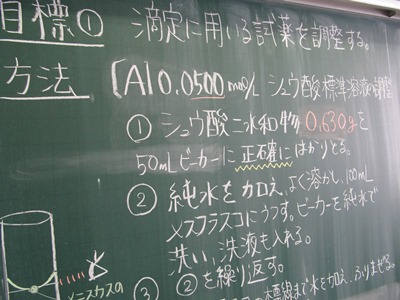 目標① 滴定に用いる試薬を調整する。
方法 [A]0.0500mol/L シュウ酸標準溶液の調整
① シュウ酸二水和物0.630gを
50mLビーカーに正確にはかりとる。
② 純水を加え、よく溶かし、100mL
メスフラスコにうつす。ビーカーを純水で
洗い、洗液も入れる。
③ ②を繰り返す。
標線まで水を加え、ふりまぜる。
メニスカスの